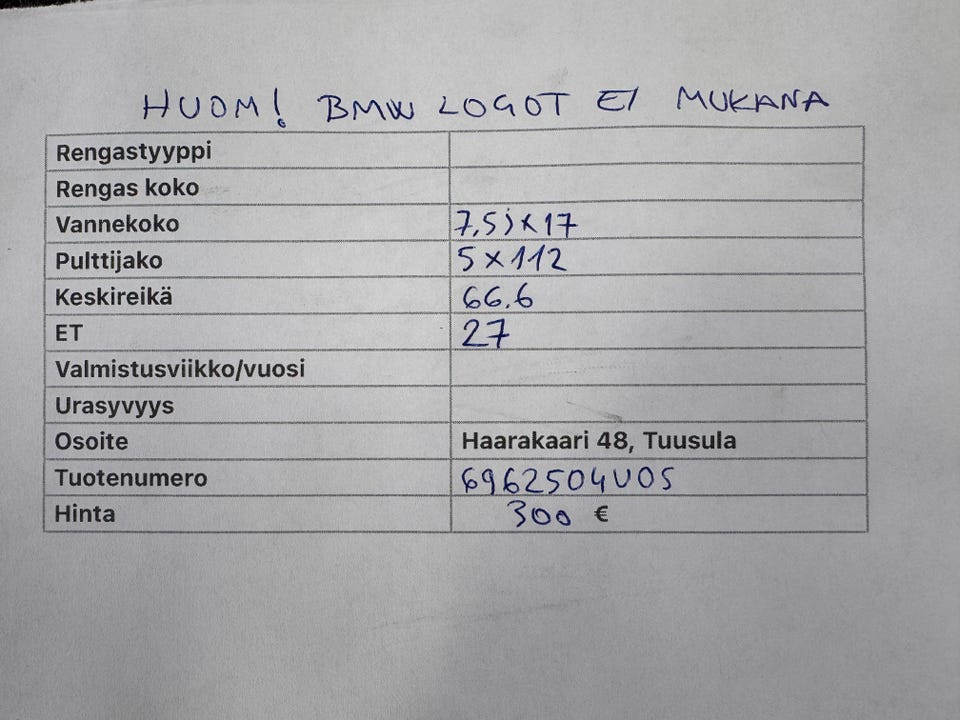 HUOM! BMW LOGOT EI MUKANA
Rengastyyppi
Rengas koko
Vannekoko 7,5jx17
Pulttijako 5x112
Keskireikä 66.6
ET 27
Valmistusviikko/vuosi
Urasyvyys
Osoite Haarakaari 48, Tuusula
Tuotenumero 6962504UOS
Hinta 300 €